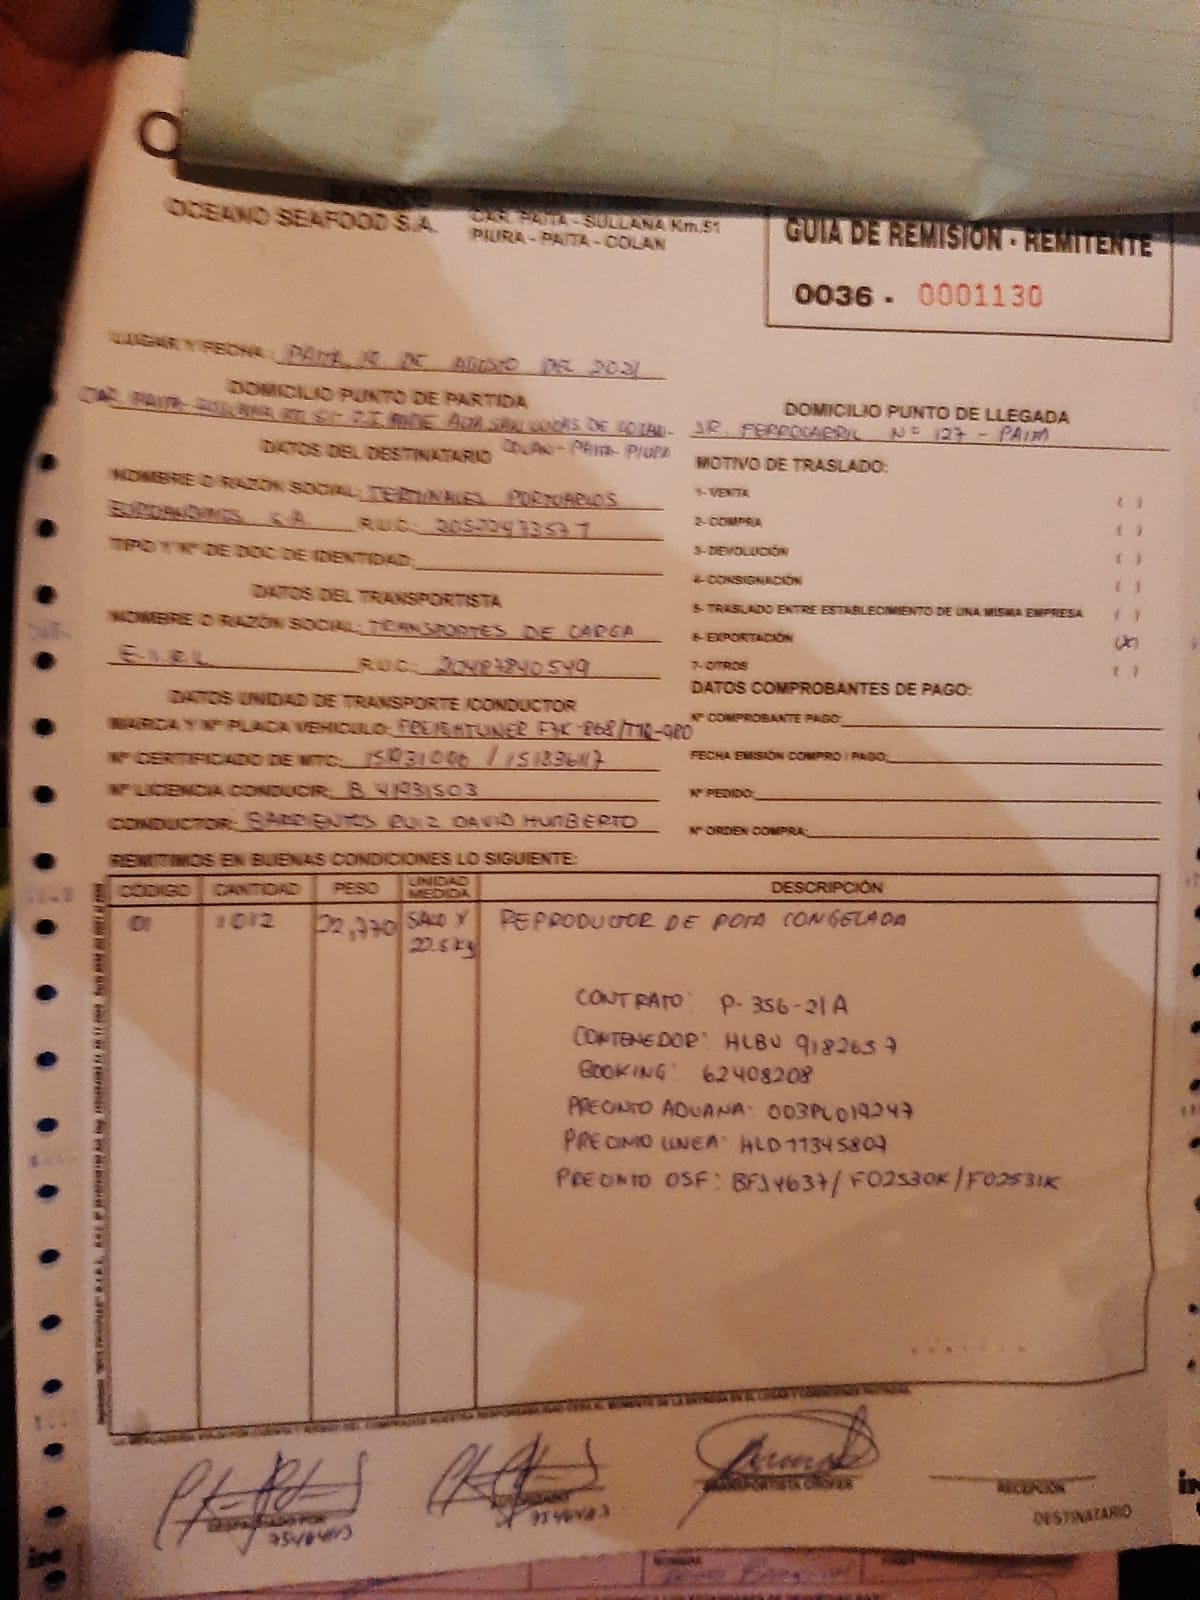 OCEANO SEAFOOD S.A.
CAR. PAITA - SULLANA Km.51
PIURA - PAITA - COLAN
GUIA DE REMISIÓN - REMITENTE
0036 - 0001130
LUGAR Y FECHA: PAITA, 19 DE AGOSTO DEL 2021
DOMICILIO PUNTO DE PARTIDA
CAR. PAITA-SULLANA SAN LUCAS DE COLAN-
COLAN - PAITA - PIURA
DOMICILIO PUNTO DE LLEGADA
JR. FERROCARRIL N° 127 - PAITA
DATOS DEL DESTINATARIO
NOMBRE O RAZÓN SOCIAL: TERMINALES PORTUARIOS
EUROANDINOS S.A. R.U.C.: 20522473571
TIPO Y N° DE DOC DE IDENTIDAD:
DATOS DEL TRANSPORTISTA
NOMBRE O RAZÓN SOCIAL: TRANSPORTES DE CARGA
E.I.R.L R.U.C.: 20487840549
DATOS UNIDAD DE TRANSPORTE /CONDUCTOR
MARCA Y N° PLACA VEHICULO: FREIGHTLINER
N° CERTIFICADO DE MTC:
N° LICENCIA CONDUCIR: B 41931503
CONDUCTOR: BARRIENTOS RUIZ DAVID HUMBERTO
MOTIVO DE TRASLADO:
1- VENTA ( )
2- COMPRA ( )
3- DEVOLUCIÓN ( )
4- CONSIGNACIÓN ( )
5- TRASLADO ENTRE ESTABLECIMIENTO DE UNA MISMA EMPRESA ( )
6- EXPORTACIÓN (X)
7- OTROS ( )
DATOS COMPROBANTES DE PAGO:
N° COMPROBANTE PAGO:
FECHA EMISIÓN COMPRO / PAGO:
N° PEDIDO:
N° ORDEN COMPRA:
REMITIMOS EN BUENAS CONDICIONES LO SIGUIENTE:
CÓDIGO CANTIDAD PESO UNIDAD MEDIDA DESCRIPCIÓN
01 1012 22,770 SACO X 22.5 Kg REPRODUCTOR DE POTA CONGELADA
CONTRATO: P-356-21A
CONTENEDOR: HLBU 9182657
BOOKING: 62408208
PRECINTO ADUANA: 003PL019247
PRECINTO LINEA: HLD11345807
PRECINTO OSF: BF14637/ F02530K/F02531K
DESPACHADO POR
AUTORIZADO
TRANSPORTISTA CHOFER
RECEPCIÓN
DESTINATARIO